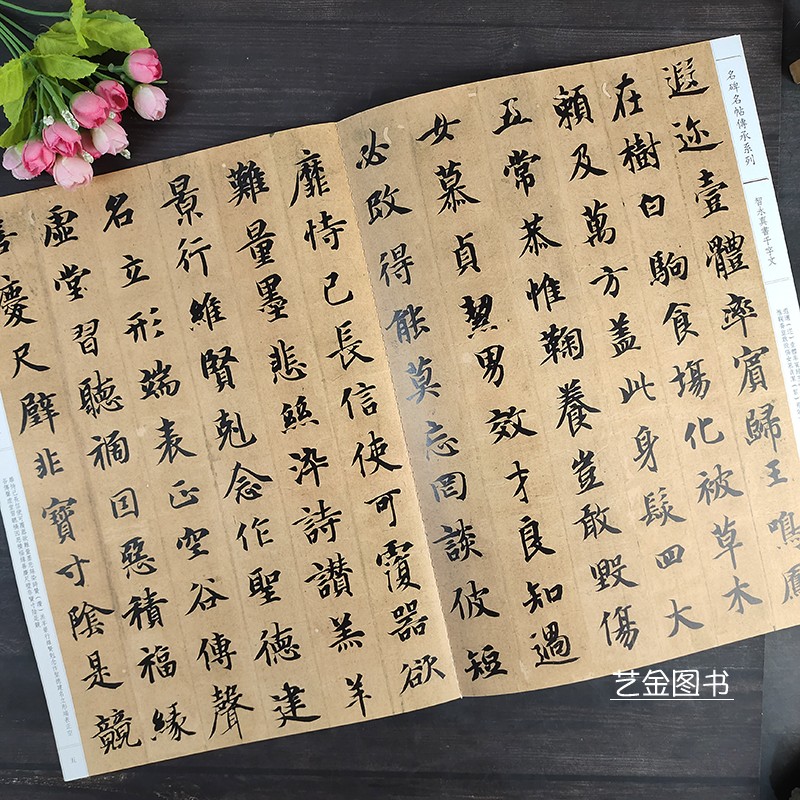 名碑名帖傳承系列
智永真書千字文
遐迩壹體率賓歸王鳴鳳
在樹白駒食場化被草木
賴及萬方盖此身髮四大
五常恭惟鞠養豈敢毀傷
女慕貞絜男效才良知過
必改得能莫忘罔談彼短
靡恃己長信使可覆器欲
難量墨悲絲染詩讚羔羊
景行維賢剋念作聖德建
名立形端表正空谷傳聲
虛堂習聽禍因惡積福緣
善慶尺璧非寶寸陰是競
五
艺金图书